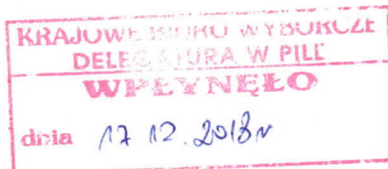 KRAJOWE BIURO WYBORCZE
DELEGATURA W PILE
WPŁYNĘŁO
dnia 17 12. 2018r